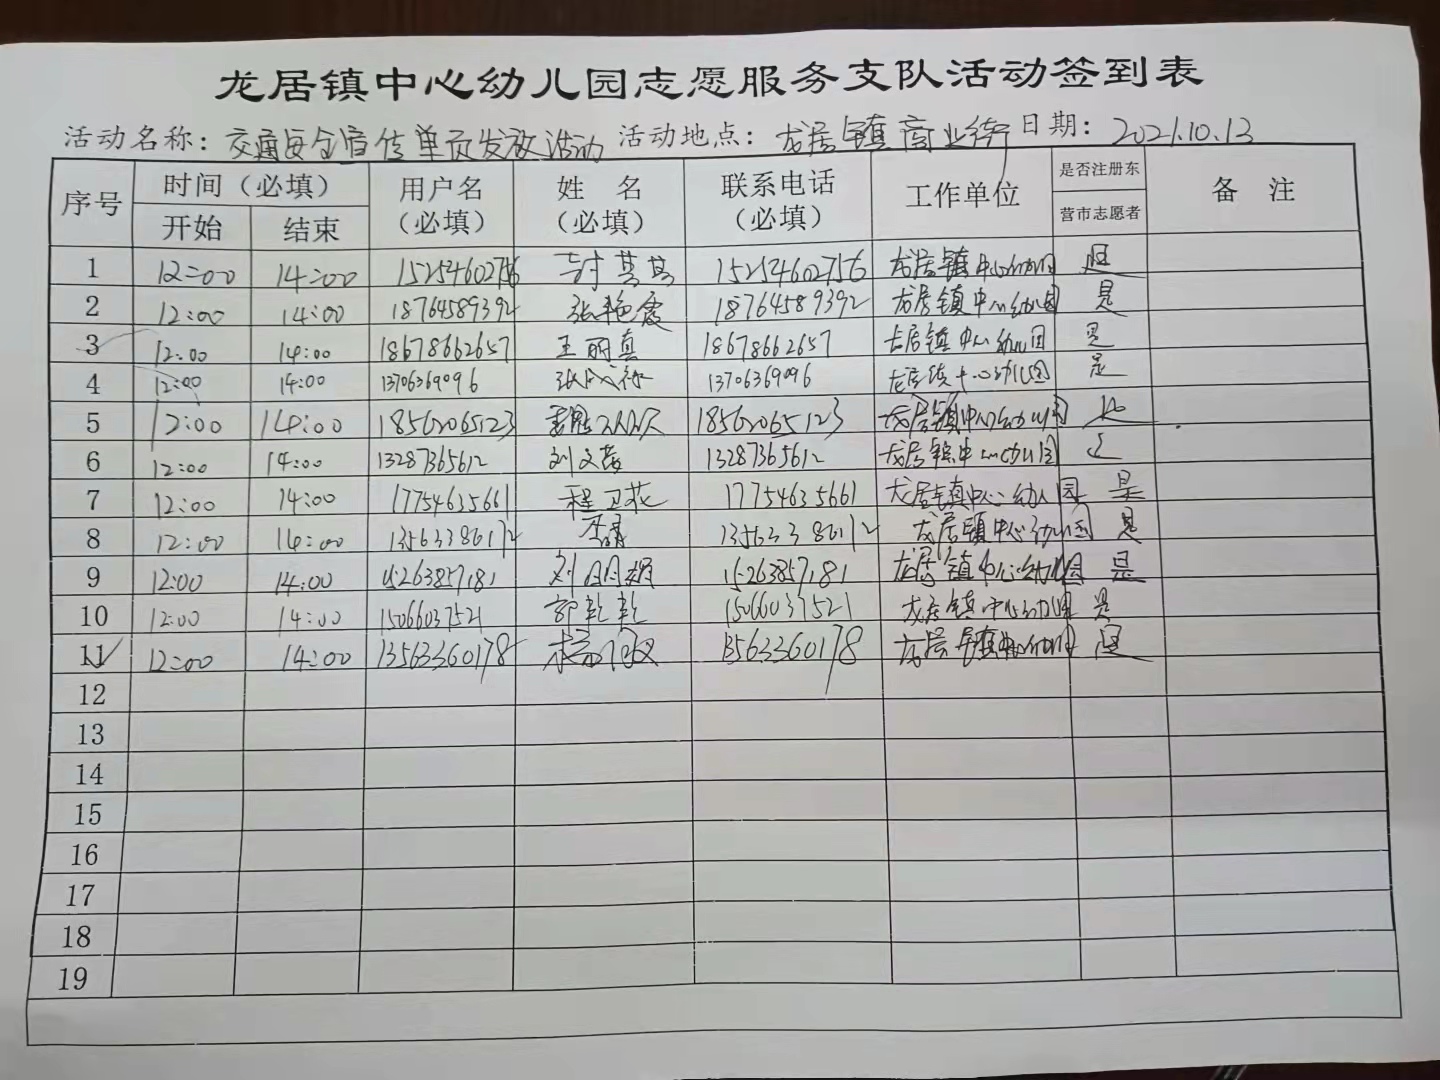 龙居镇中心幼儿园志愿服务支队活动签到表
活动名称：交通安全宣传单页发放活动 活动地点：龙居镇商业街 日期：2021.10.13
序号 时间（必填） 用户名（必填） 姓 名（必填） 联系电话（必填） 工作单位 是否注册东营市志愿者 备 注
开始 结束
1 12:00 14:00 15254602756 15254602756 龙居镇中心幼儿园 是
2 12:00 14:00 18764589392 张艳霞 18764589392 龙居镇中心幼儿园 是
3 12:00 14:00 18678662657 王丽真 18678662657 龙居镇中心幼儿园 是
4 12:00 14:00 13706369096 13706369096 龙居镇中心幼儿园 是
5 12:00 14:00 18562065123 18562065123 龙居镇中心幼儿园
6 12:00 14:00 13287365612 刘文 13287365612 龙居镇中心幼儿园
7 12:00 14:00 17754635661 程卫花 17754635661 龙居镇中心幼儿园 是
8 12:00 14:00 13563386112 13563386112 龙居镇中心幼儿园 是
9 12:00 14:00 15263857181 刘 15263857181 龙居镇中心幼儿园 是
10 12:00 14:00 15066037521 郭乾乾 15066037521 龙居镇中心幼儿园 是
11 12:00 14:00 13563360178 杨 13563360178 龙居镇中心幼儿园 是
12
13
14
15
16
17
18
19